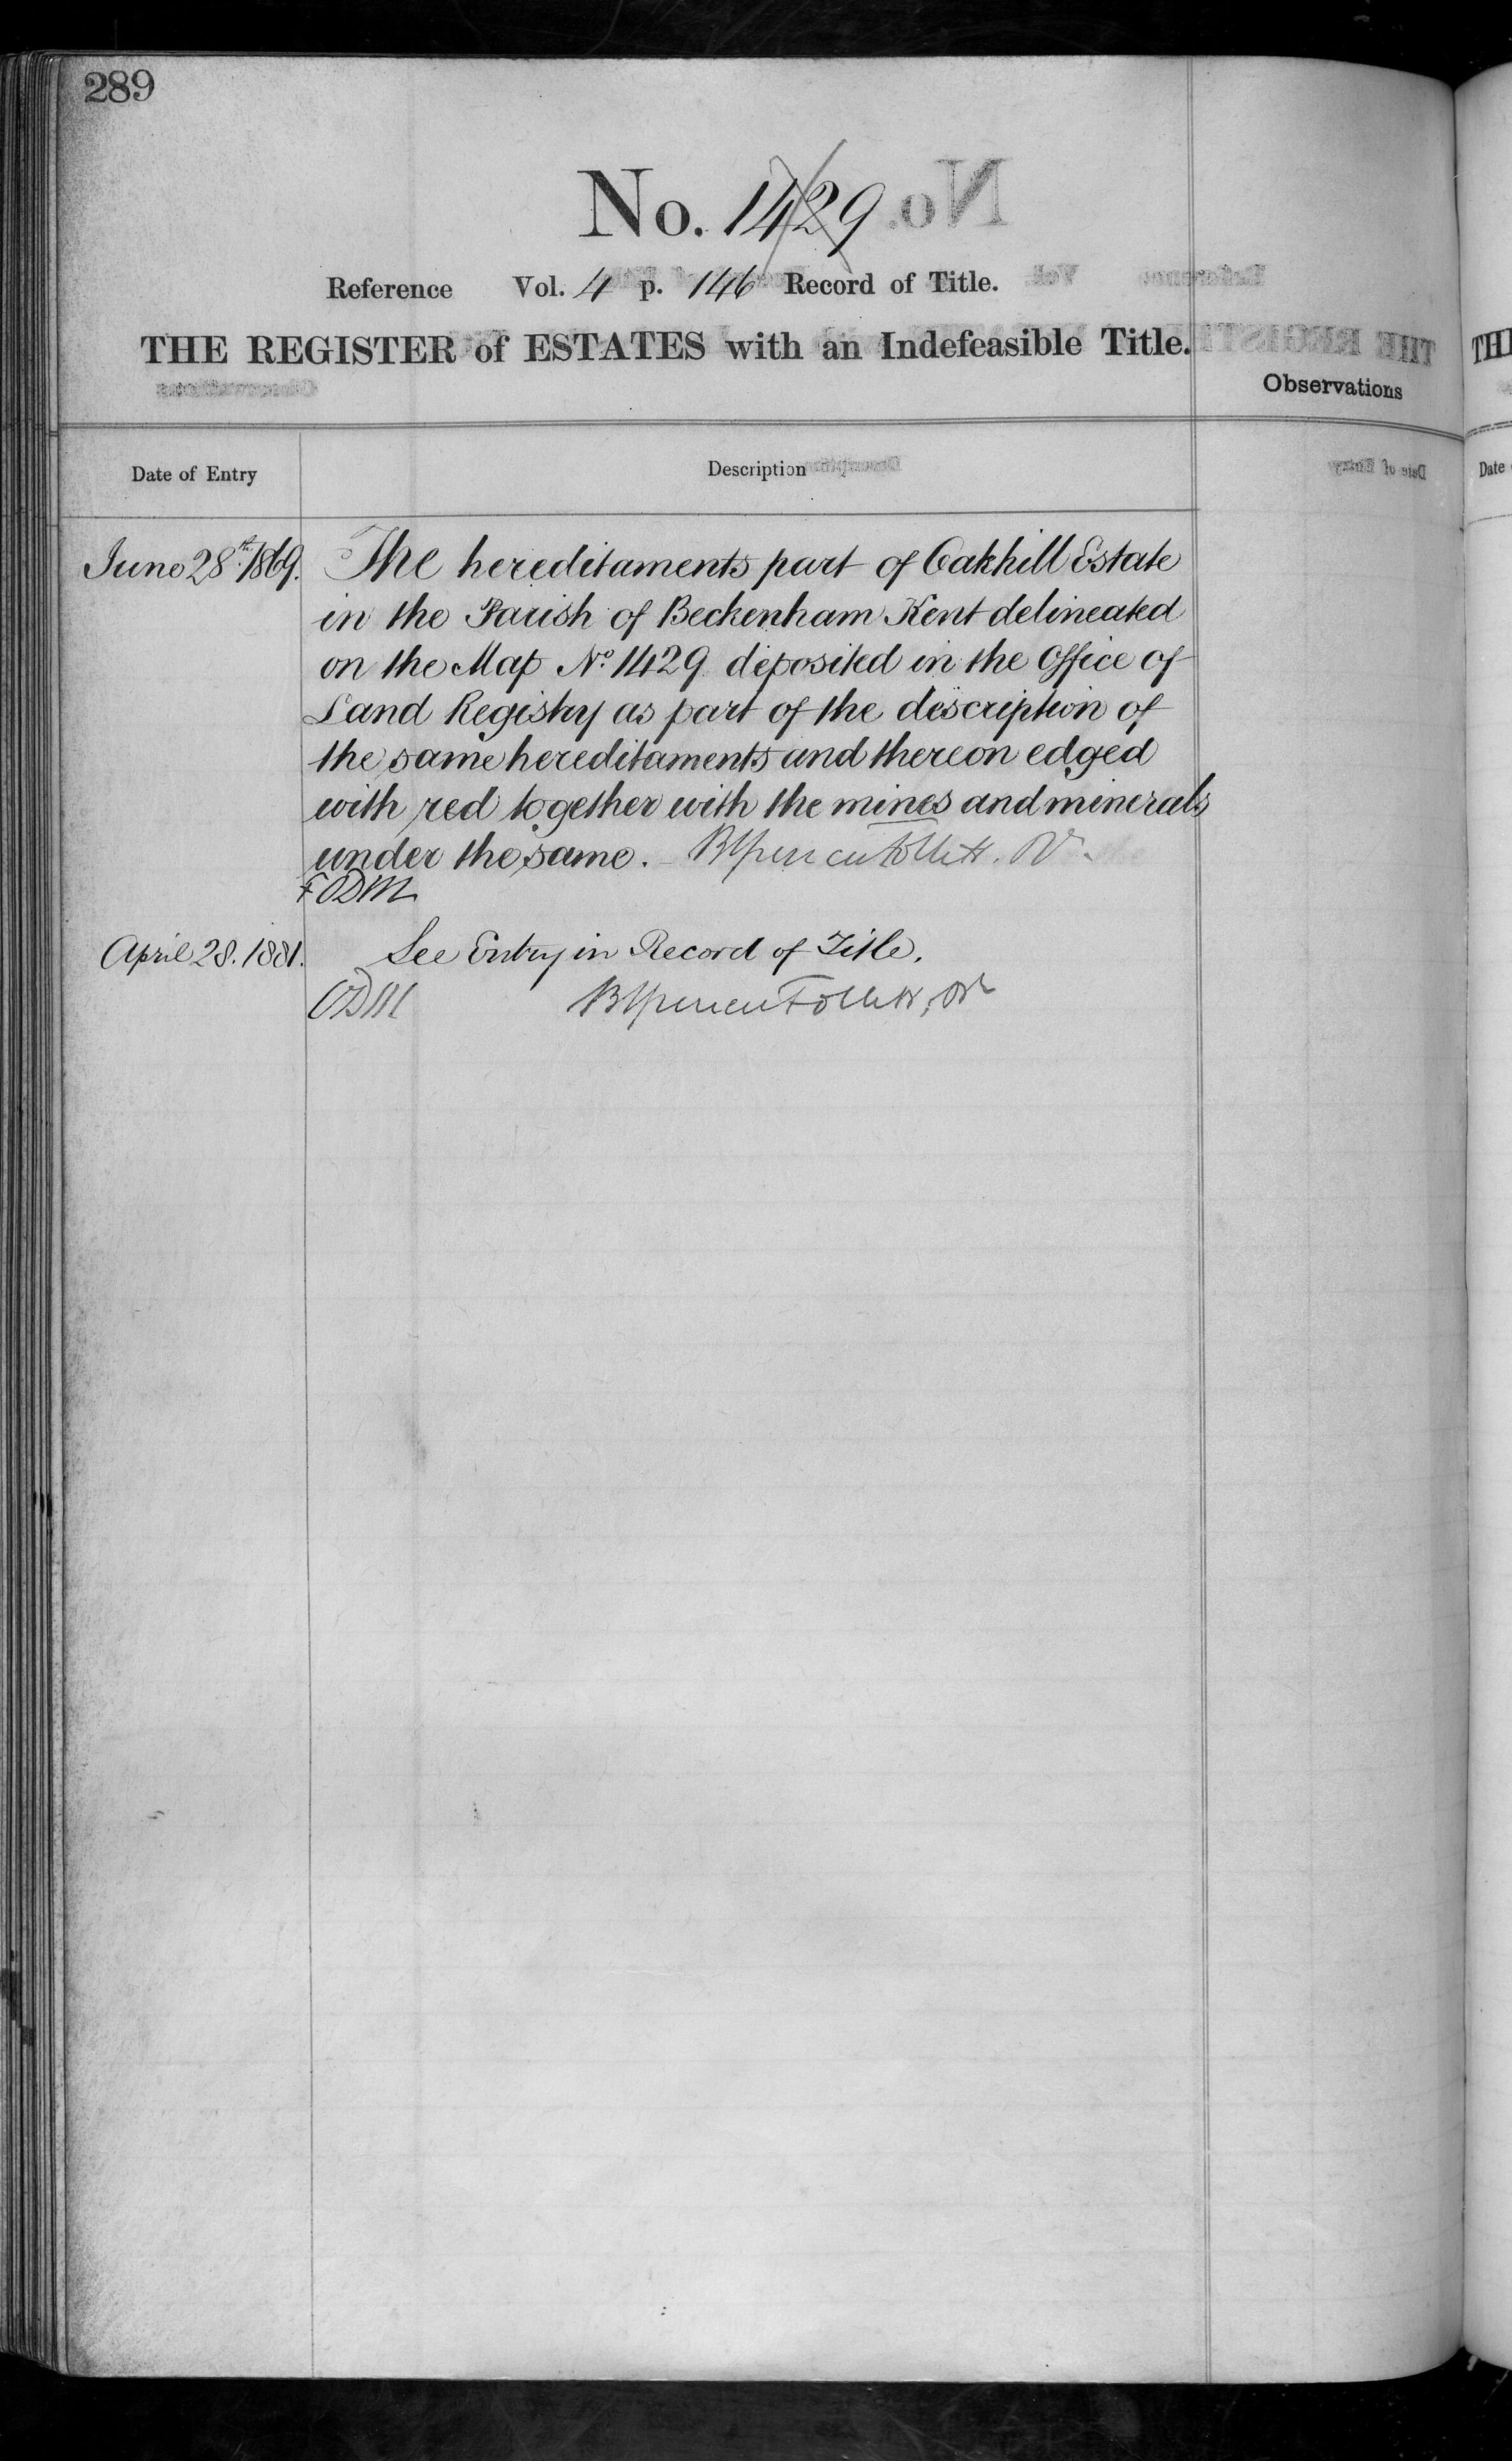 289
No. 1429
Reference Vol. 4 p. 146 Record of Title.
THE REGISTER of ESTATES with an Indefeasible Title.
Observations
Date of Entry Description
June 28th. 1869. The hereditaments part of Oakhill Estate
in the Parish of Beckenham Kent delineated
on the Map No. 1429 deposited in the Office of
Land Registry as part of the description of
the same hereditaments and thereon edged
with red together with the mines and minerals
under the same. Brent Spencer Follett. Rr.
ODM
April 28. 1881. See Entry in Record of Title.
ODM
THE
Date